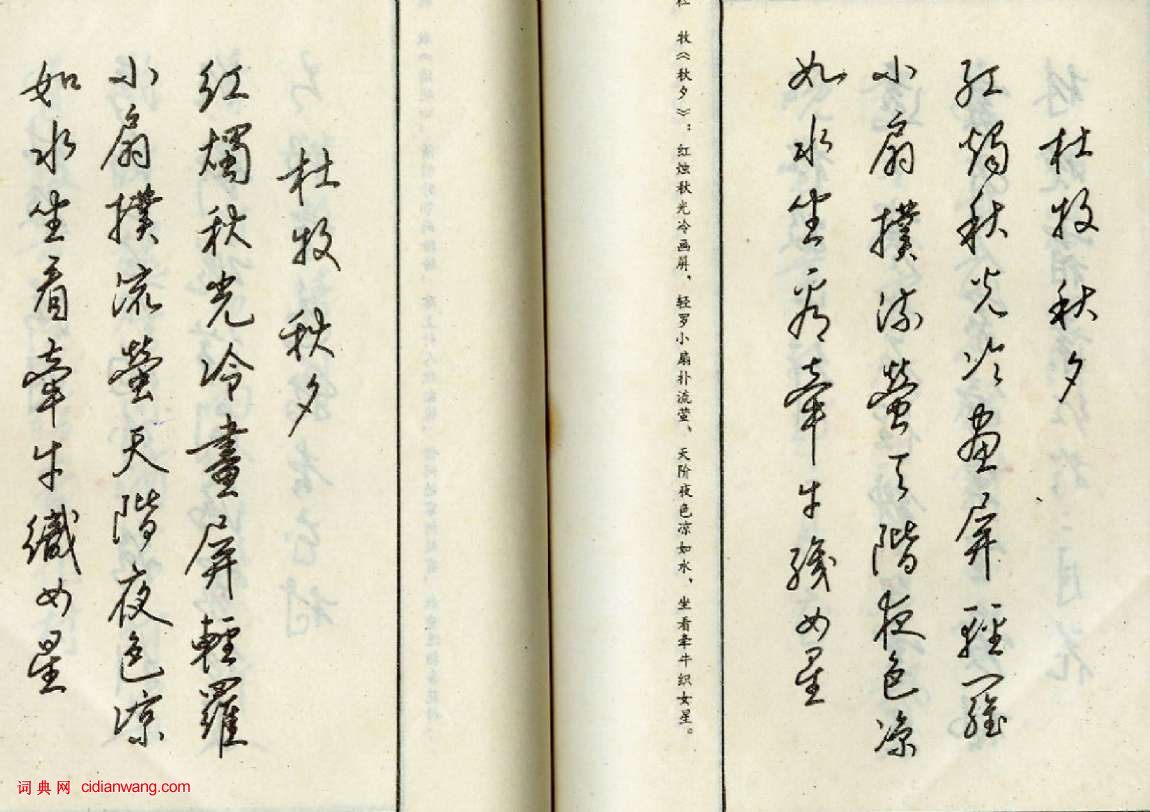 杜牧秋夕
紅燭秋光冷畫屏輕羅
小扇撲流螢天階夜色凉
如水坐看牽牛織女星
杜牧《秋夕》：红烛秋光冷画屏、轻罗小扇扑流萤、天阶夜色凉如水、坐看牵牛织女星。
杜牧秋夕
紅燭秋光冷畫屏輕羅
小扇撲流螢天階夜色凉
如水坐看牽牛織女星
词典网 cidianwang.com